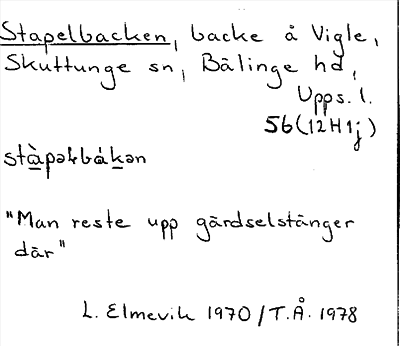 Stapelbacken, backe å Vigle,
Skuttunge sn, Bälinge hd,
Upps. l.
56(12H1j)
stàpəɫbákən
"Man reste upp gärdselstänger
där"
L. Elmevik 1970/T.Å. 1978